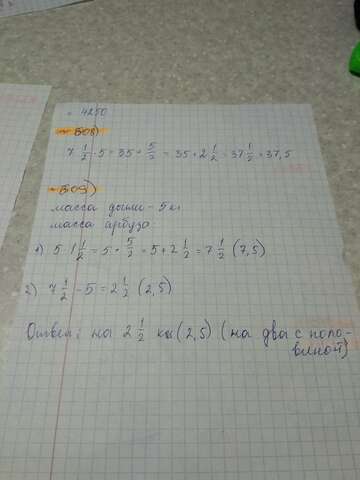 = 4250
~ 508)
7 1/2 · 5 = 35 + 5/2 = 35 + 2 1/2 = 37 1/2 = 37,5
~ 509)
масса дыни - 5 кг
масса арбуза
1) 5 · 1 1/2 = 5 + 5/2 = 5 + 2 1/2 = 7 1/2 (7,5)
2) 7 1/2 - 5 = 2 1/2 (2,5)
Ответ: на 2 1/2 кг (2,5) (на два с поло-
виной)